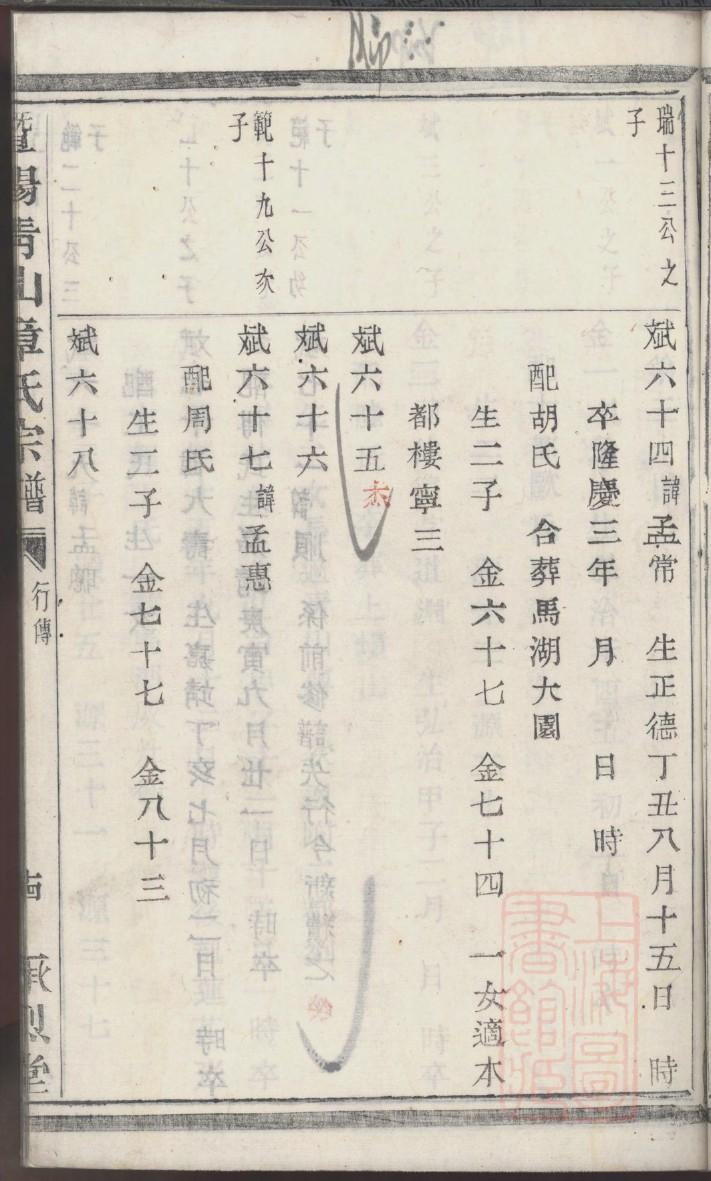 瑞十三公之
子
斌六十四諱孟常 生正德丁丑八月十五日 時
卒隆慶三年 月 日 時
配胡氏 合葬馬湖大園
生二子 金六十七 金七十四 一女適本
都樓寧三
斌六十五
斌六十六
範十九公次
子
斌六十七諱孟惠
配周氏
生二子 金七十七 金八十三
斌六十八
暨陽青山章氏宗譜
行傳
承烈堂
上海圖書館藏